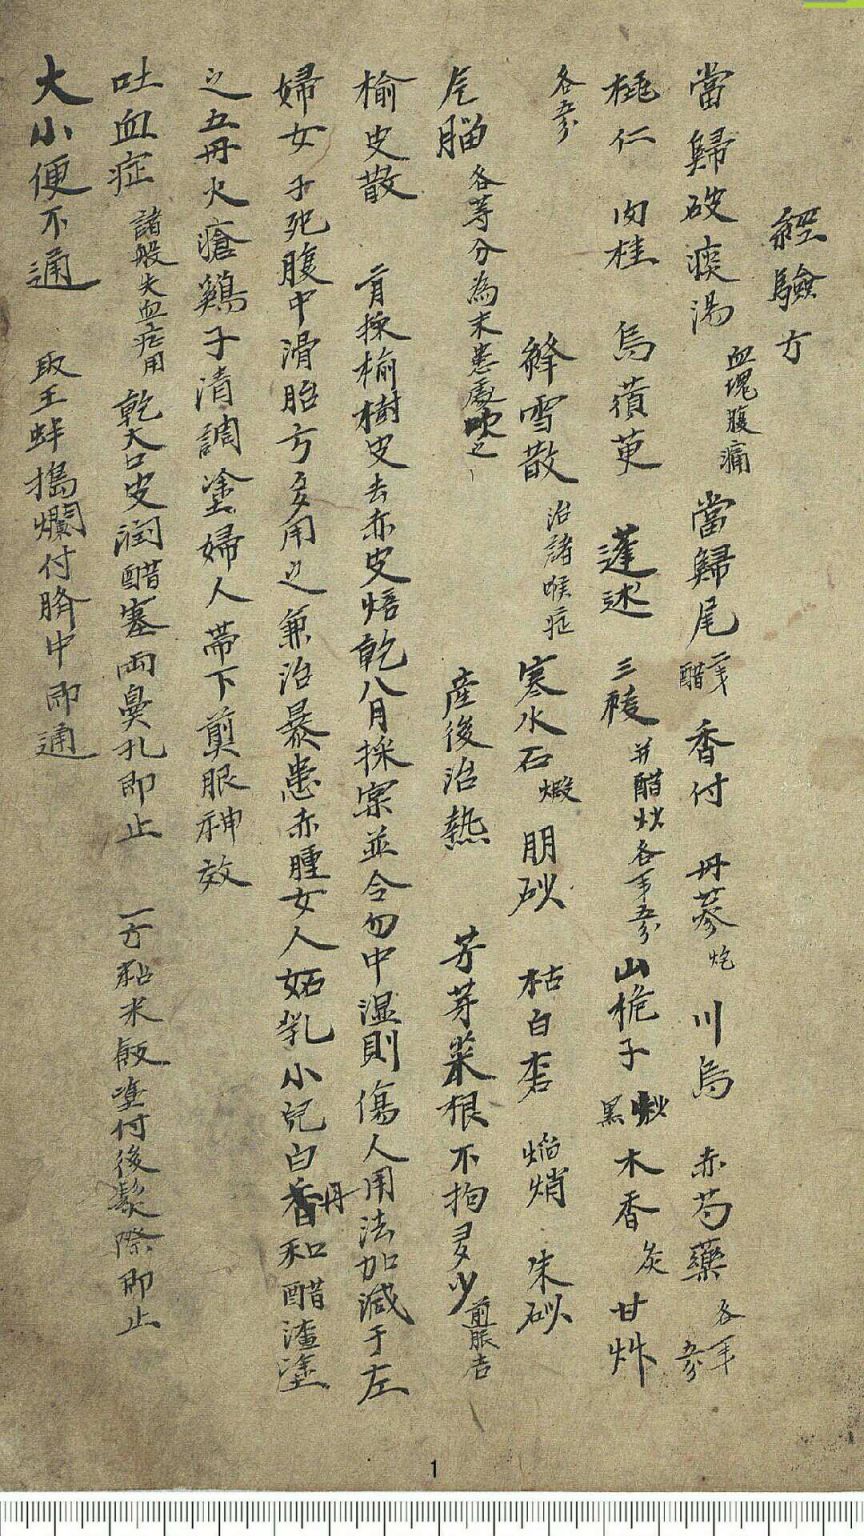 經驗方
當歸破痰湯 血塊腹痛 當歸尾 二戔醋 香付 丹蔘 炮 川烏 赤芍藥 各一戔五分
桃仁 肉桂 烏蕷茰 蓬述 三稜 並醋炒各一戔五分 山梔子 炒黑 木香 炭 甘艸
各五分
絳雪散 治諸喉症 寒水石 煆 朋砂 枯白礬 焰焇 朱砂
片腦 各等分為末患處吹之 產後治熱 芳芽菜根不拘多少 煎服吉
榆皮散 二月採榆樹皮去赤皮焙乾八月採宲並令勿中湿則傷人用法加減于左
婦女子死腹中滑胎方多用之兼治暴患赤腫女人妬乳小兒白丹和醋渣塗
之五丹火瘡鷄子清調塗婦人帶下煎服神效
吐血症 諸般失血症用 乾大口皮润醋塞兩鼻孔即止 一方粘米飯塗付後髮際即止
大小便不通 取土蚌搗爛付臍中即通
1